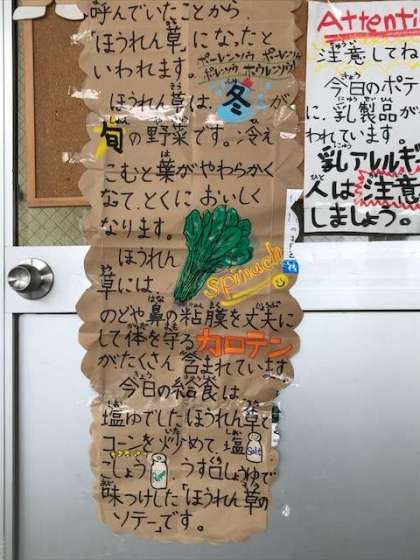 呼んでいたことから、
「ほうれん草」になったと
いわれます。
ポーレンソウ ポーレンソウ
ポレンソウ ホウレンソウ!
ほうれん草は、冬が
旬の野菜です。冷え
こむと葉がやわらかく
なって、とくにおいしく
なります。
ほうれん
草には、
spinach
のどや鼻の粘膜を丈夫に
して体を守るカロテン
がたくさん含まれています
今日の給食は、
塩ゆでしたほうれん草と
コーンを炒めて、塩
Salt
こしょう、うす口しょうゆで
味つけした「ほうれん草の
ソテー」です。
Attenti
注意してね
今日のポテ
に、乳製品が
われています。
乳アレルギ
人は注意
しましょう。